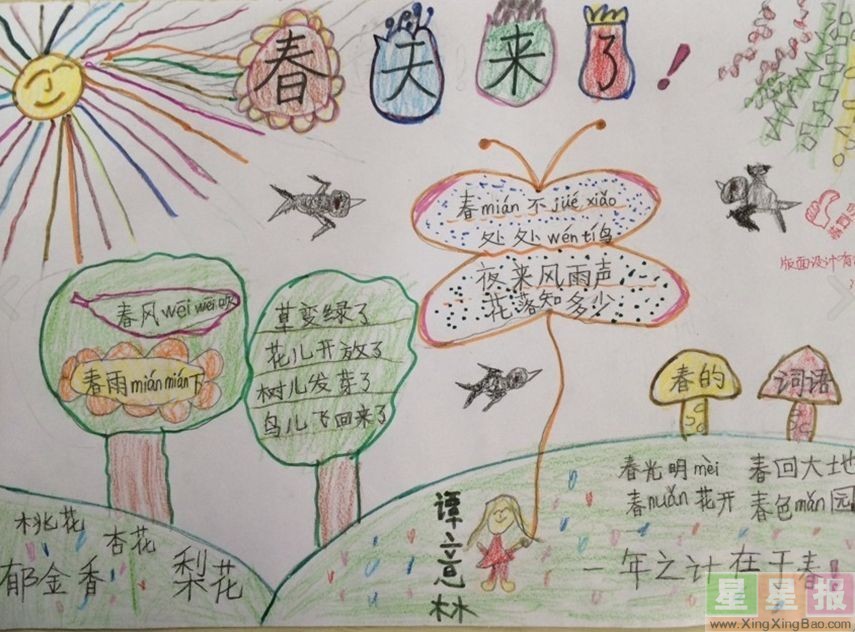 春天来了!
春mián不jué xiǎo
处处wén tí鸟
夜来风雨声
花落知多少
版面设计有
春风wēi wēi吹
春雨mián mián下
草变绿了
花儿开放了
树儿发芽了
鸟儿飞回来了
春的 词语
春光明mèi 春回大地
春nuǎn花开 春色mǎn园
一年之计在于春
桃花
杏花
郁金香 梨花
谭意林
星星报
www.XingXingBao.com